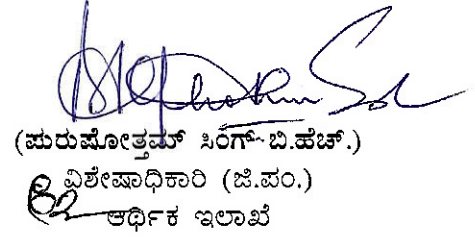 (ಪುರುಷೋತ್ತಮ್ ಸಿಂಗ್ ಬಿ.ಹೆಚ್.)
ವಿಶೇಷಾಧಿಕಾರಿ (ಜಿ.ಪಂ.)
ಆರ್ಥಿಕ ಇಲಾಖೆ